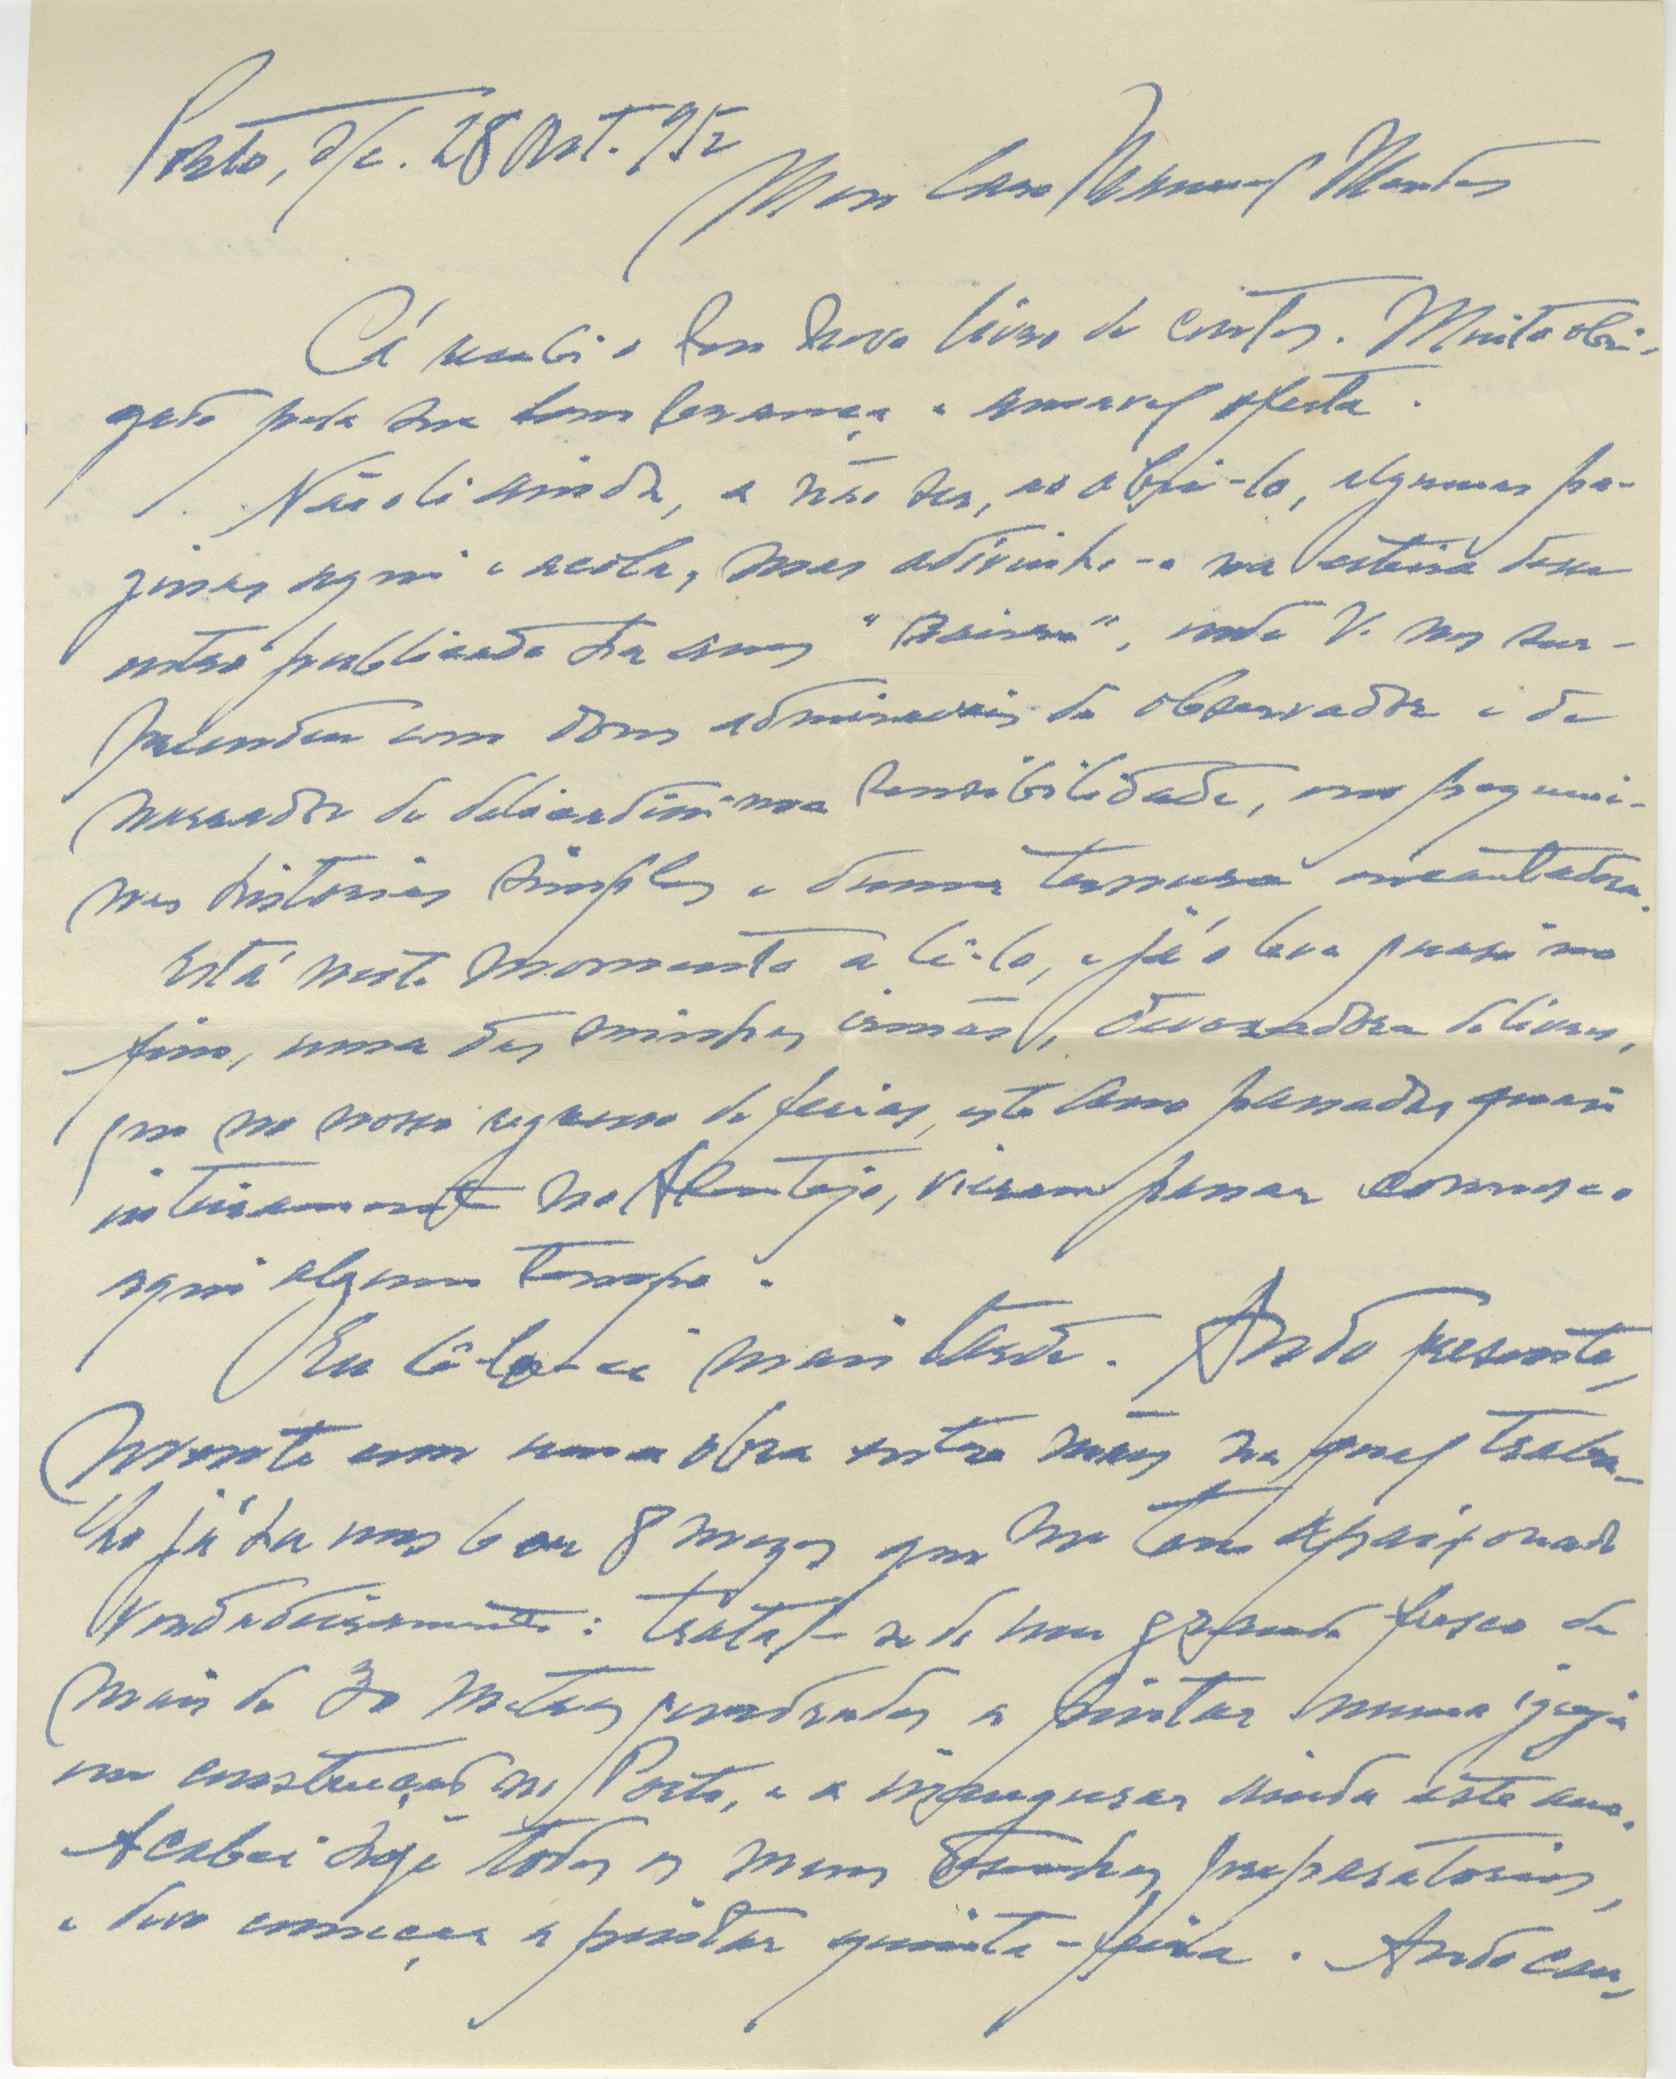 Porto, s/c. 28 Out. 952
Meu Caro Manuel Mendes
Cá recebi o seu novo livro de contos. Muito obri-
gado pela sua lembrança e amavel oferta.
Não o li ainda, a não ser, ao abri-lo, algumas pa-
ginas aqui e acolá, mas adivinho-o na esteira desse
outro publicado ha anos "Bairro", onde V. nos sur-
preendeu com dons admiraveis de observador e de
narrador de delicadissima sensibilidade, em pequeni-
nas historias simples e duma ternura encantadora.
Está neste momento a lê-lo, e já o leva quasi no
fim, uma das minhas irmãs, devoradora de livros,
que no nosso regresso de ferias, este ano passadas quasi
inteiramente no Alentejo, vieram passar comnosco
aqui algum tempo.
Eu lê-lo-ei mais tarde. Ando presente,
mente com uma obra entre mãos na qual traba-
lho já ha uns 6 ou 8 mezes que me tem apaixonado
verdadeiramente: trata-se de um grande fresco de
mais de 30 metros quadrados a pintar numa igreja
em construção no Porto, e a inaugurar ainda este ano.
Acabei hoje todos os meus desenhos preparatorios,
e devo começar a pintar quinta-feira. Ando can,